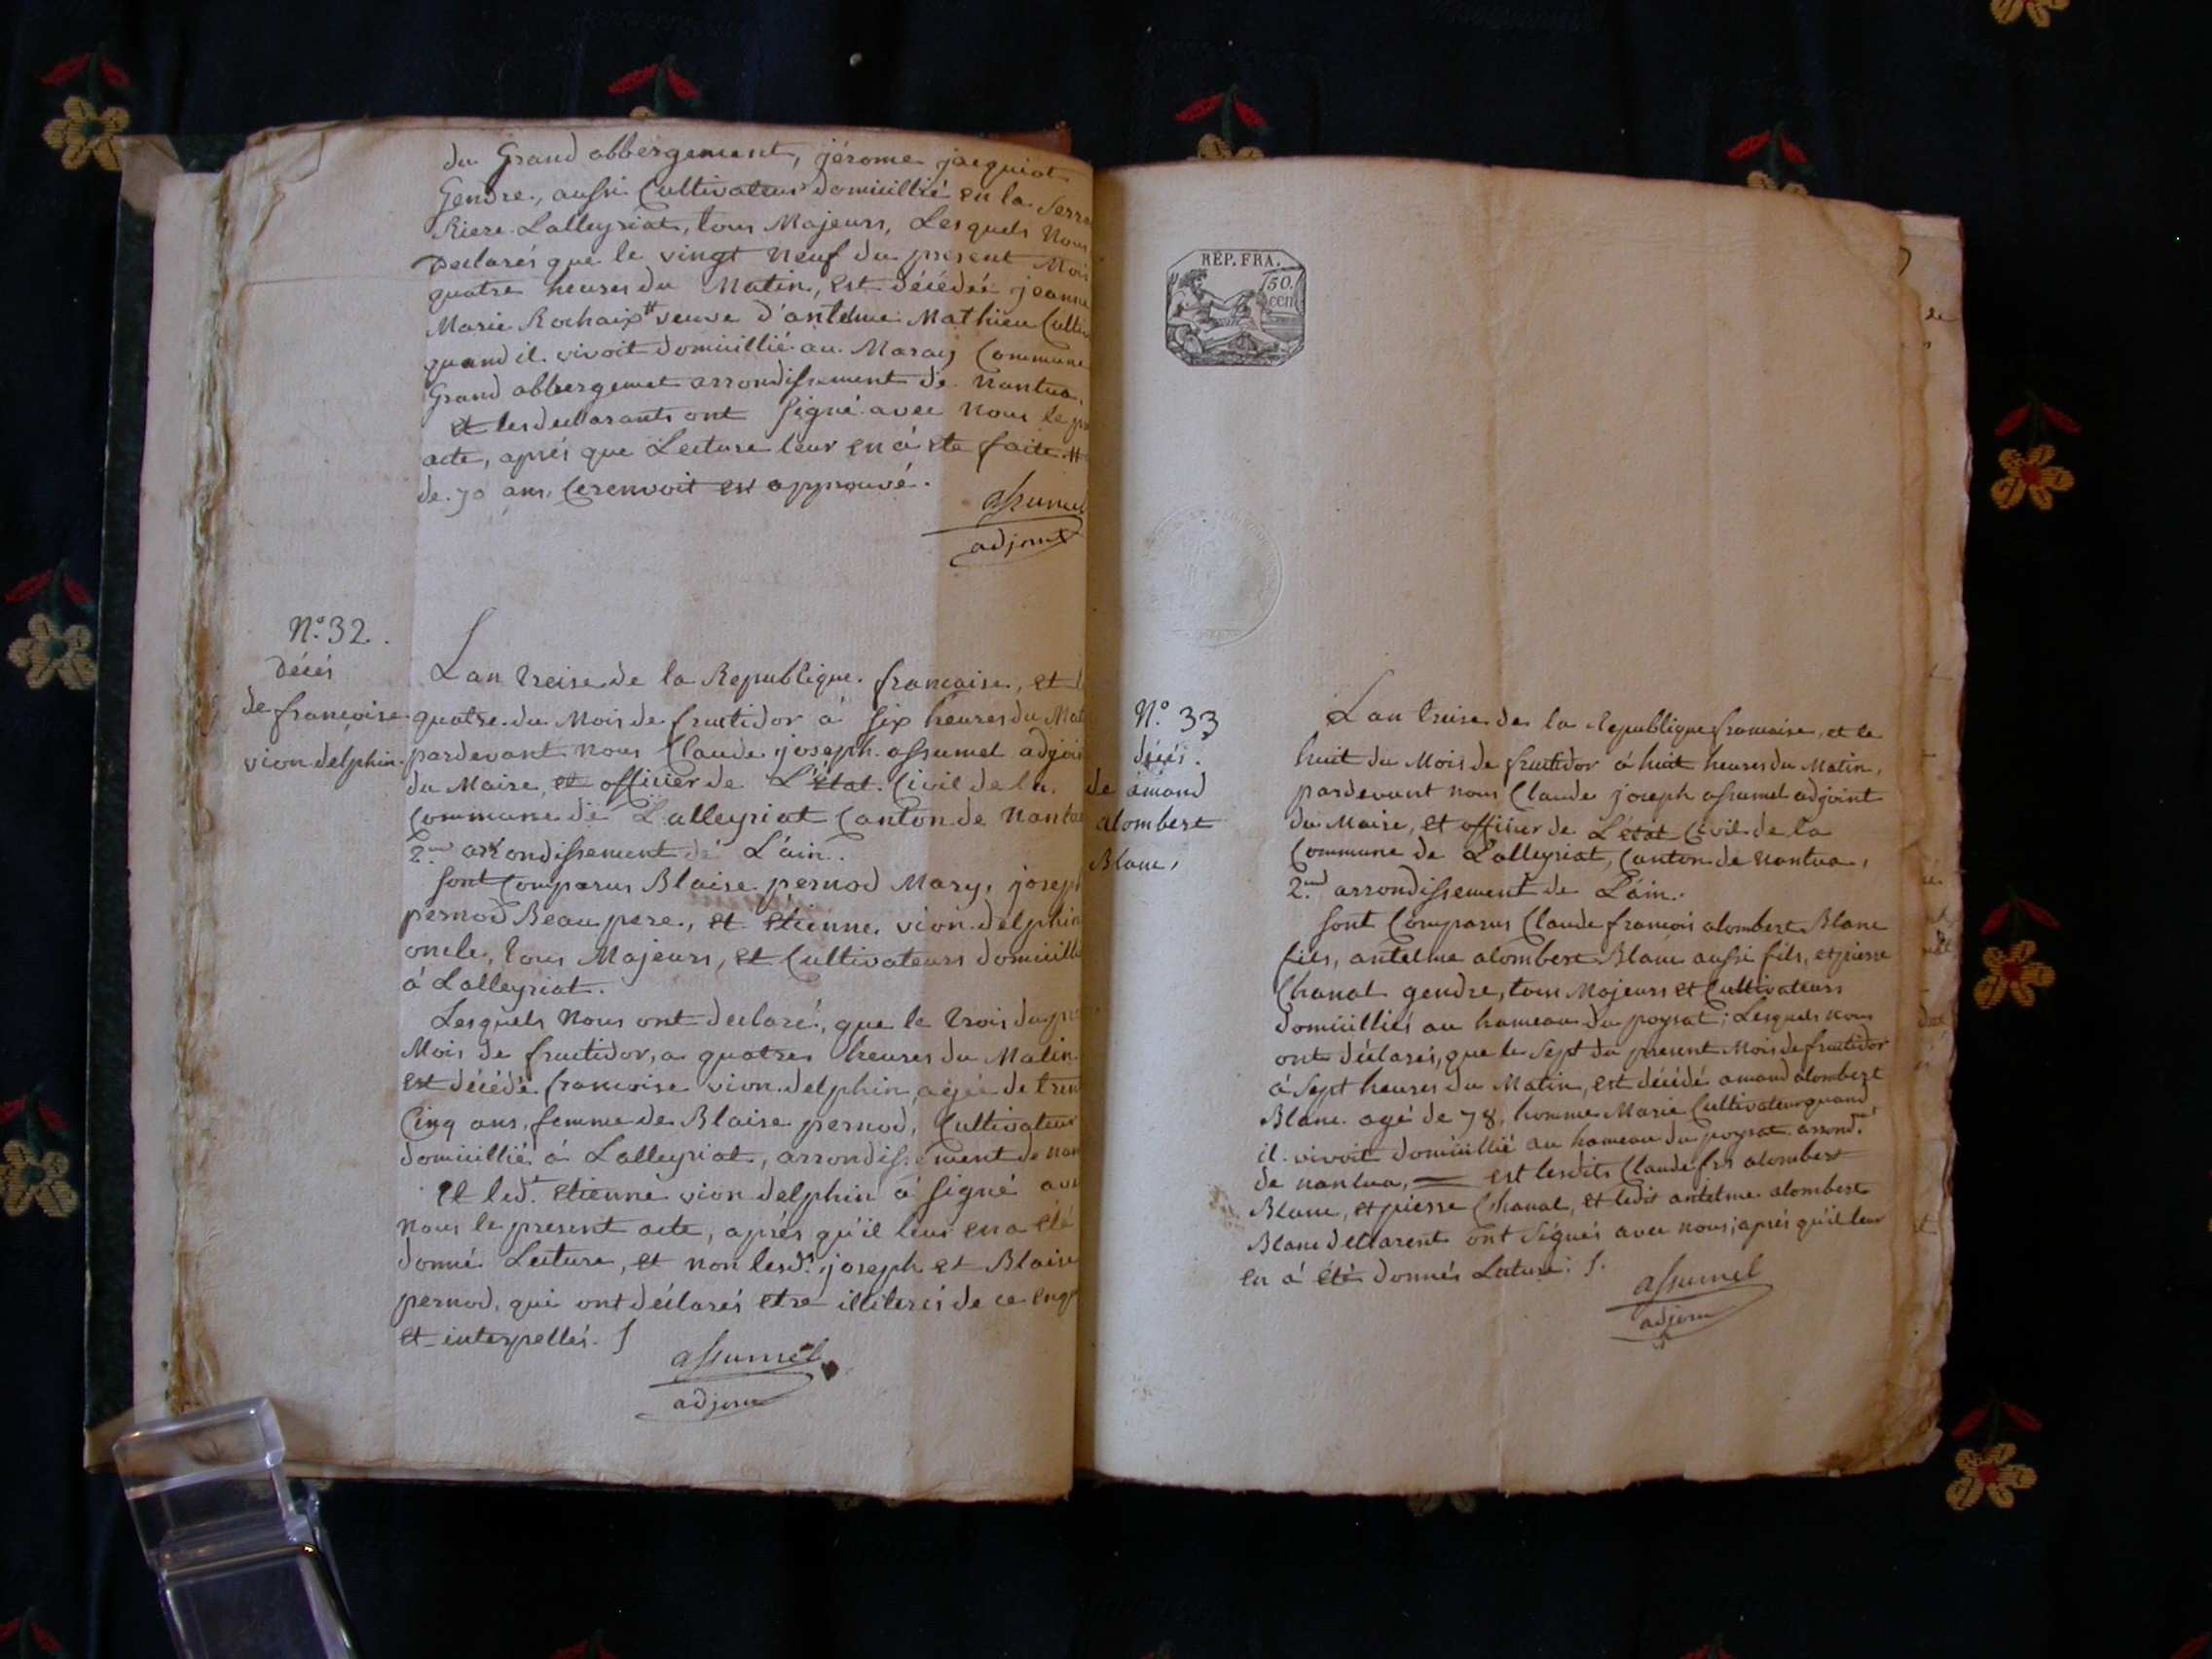 du Grand abbergement, jérome jacquiot
Gendre, aussi Cultivateur domicillié en la Serra
Riere Lalleyriat, tous Majeurs, Lesquels Nous
declarés que le vingt Neuf du present Mois
quatre heures du Matin, est décédée jeanne
Marie Rochaix # veuve d'antelme Mathieu Culti
quand il vivoit domicillié au Marais Commune
Grand abbergemet arrondissement de Nantua,
et les declarants ont signé avec Nous le p
acte, aprés que Lecture leur en á ete faite #
de 70 ans. Ce renvoit est approuvé.
assumel
adjoint
N.º 32.
décés
de francoise
vion delphin.
Lan treise de la Republique francoise, et l
quatre du Mois de fructidor á six heures du Mat
pardevant nous Claude joseph assumel adjoi
du Maire, et officier de L'état Civil de la
Commune de Lalleyriat Canton de Nantua
2.nd arrondissement de L'ain.
sont Comparus Blaise pernod Mary, joseph
pernod Beau pere, et etienne vion delphin
oncle, tous Majeurs, et Cultivateurs domicillé
á Lalleyriat.
Lesquels Nous ont declaré, que le trois du pr
Mois de fructidor, a quatre heures du Matin
est décédé francoise vion delphin, agée de tren
Cinq ans, femme de Blaise pernod, Cultivateur
domicillié á Lalleyriat, arrondissement de nan
Et led.t etienne vion delphin á signé ave
Nous le present acte, aprés qu'il leur en a été
donné Lecture, et non lesd.ts joseph et Blaise
pernod, qui ont déclarés etre illiterés de ce enq
et interpellés.
assumel
adjoint
RÉP. FRA.
50.
cen
N.º 33
décés.
de amand
alombert
Blanc,
Lan treise de la Republique francoise, et le
huit du Mois de fructidor á huit heures du Matin,
pardevant nous Claude joseph assumel adjoint
du Maire, et officier de L'état Civil de la
Commune de Lalleyriat, Canton de Nantua,
2.nd arrondissement de L'ain.
sont Comparus Claude francois alombert Blanc
fils, antelme alombert Blanc aussi fils, et pierre
Chanal gendre, tous Majeurs et Cultivateurs
domicilliés au hameau du poysat; Lesquels nous
ont déclarés, que le sept du present Mois de fructidor
á sept heures du Matin, est décédé amand alombert
Blanc agé de 78, homme Marié Cultivateur quand
il vivoit domicillié au hameau du poysat arrond.mt
de nantua, = est lesdits Claude frs alombert
Blanc, et pierre Chanal, et ledit antelme alombert
Blanc declarent ont signés avec nous; aprés qu'il leur
en á été donnés Lecture.
assumel
adjoint